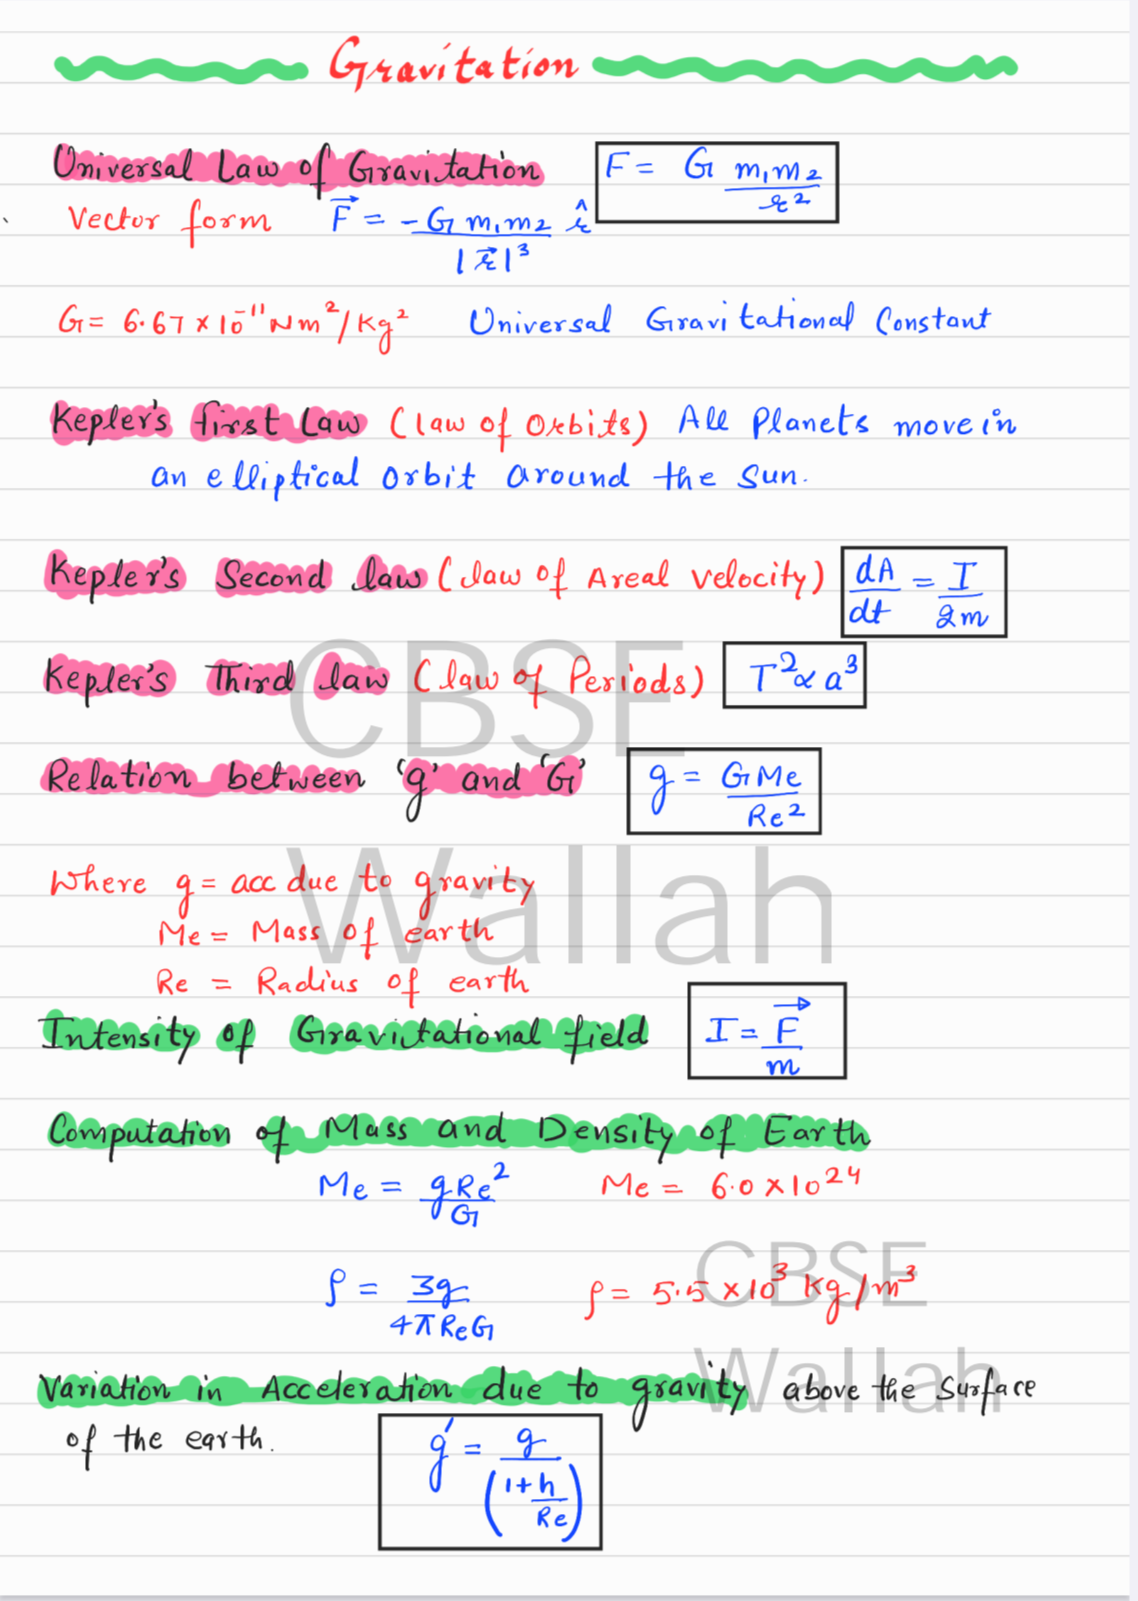 Gravitation
Universal Law of Gravitation F = G m₁m₂ / r²
Vector form F⃗ = -G m₁m₂ / |r⃗|³ r̂
G = 6.67 x 10⁻¹¹ Nm²/Kg² Universal Gravitational Constant
Kepler's first Law (law of Orbits) All Planets move in
an elliptical orbit around the sun.
Kepler's Second law (law of Areal velocity) dA/dt = I/2m
CBSE
Kepler's Third law (law of Periods) T² ∝ a³
Relation between 'g' and 'G' g = GMe / Re²
Wallah
Where g = acc due to gravity
Me = Mass of earth
Re = Radius of earth
Intensity of Gravitational field I = F⃗/m
Computation of Mass and Density of Earth
Me = gRe²/G Me = 6.0 x 10²⁴
CBSE
ρ = 3g / 4πReG ρ = 5.5 x 10³ kg/m³
Wallah
Variation in Acceleration due to gravity above the Surface
of the earth. g' = g / (1 + h/Re)